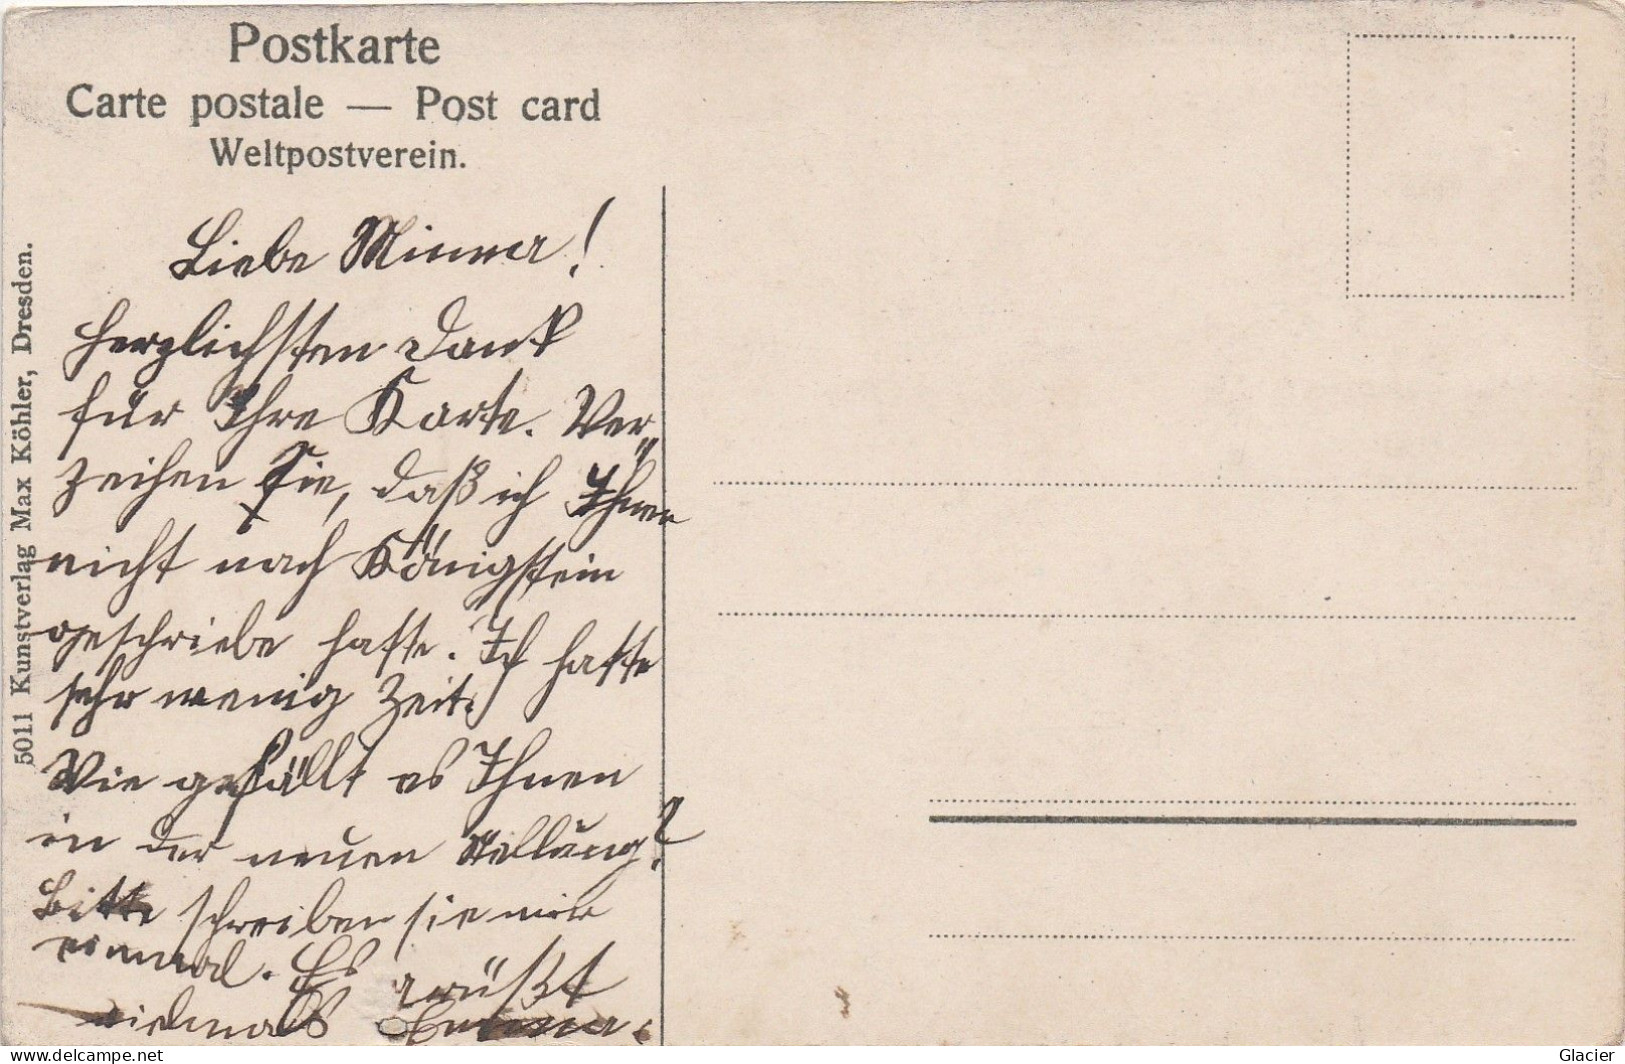 Postkarte
Carte postale — Post card
Weltpostverein.
5011 Kunstverlag Max Köhler, Dresden.
Liebe Minna!
Herzlichsten Dank
für Ihre Karte. Ver„
zeihen Sie, daß ich Ihnen
nicht nach Königstein
geschriebe hatte. Ich hatte
sehr wenig Zeit.
Wie gefällt es Ihnen
in der neuen Stellung?
Bitte schreiben sie mir
einmal. Es grüßt
vielmals
Glacier
www.delcampe.net